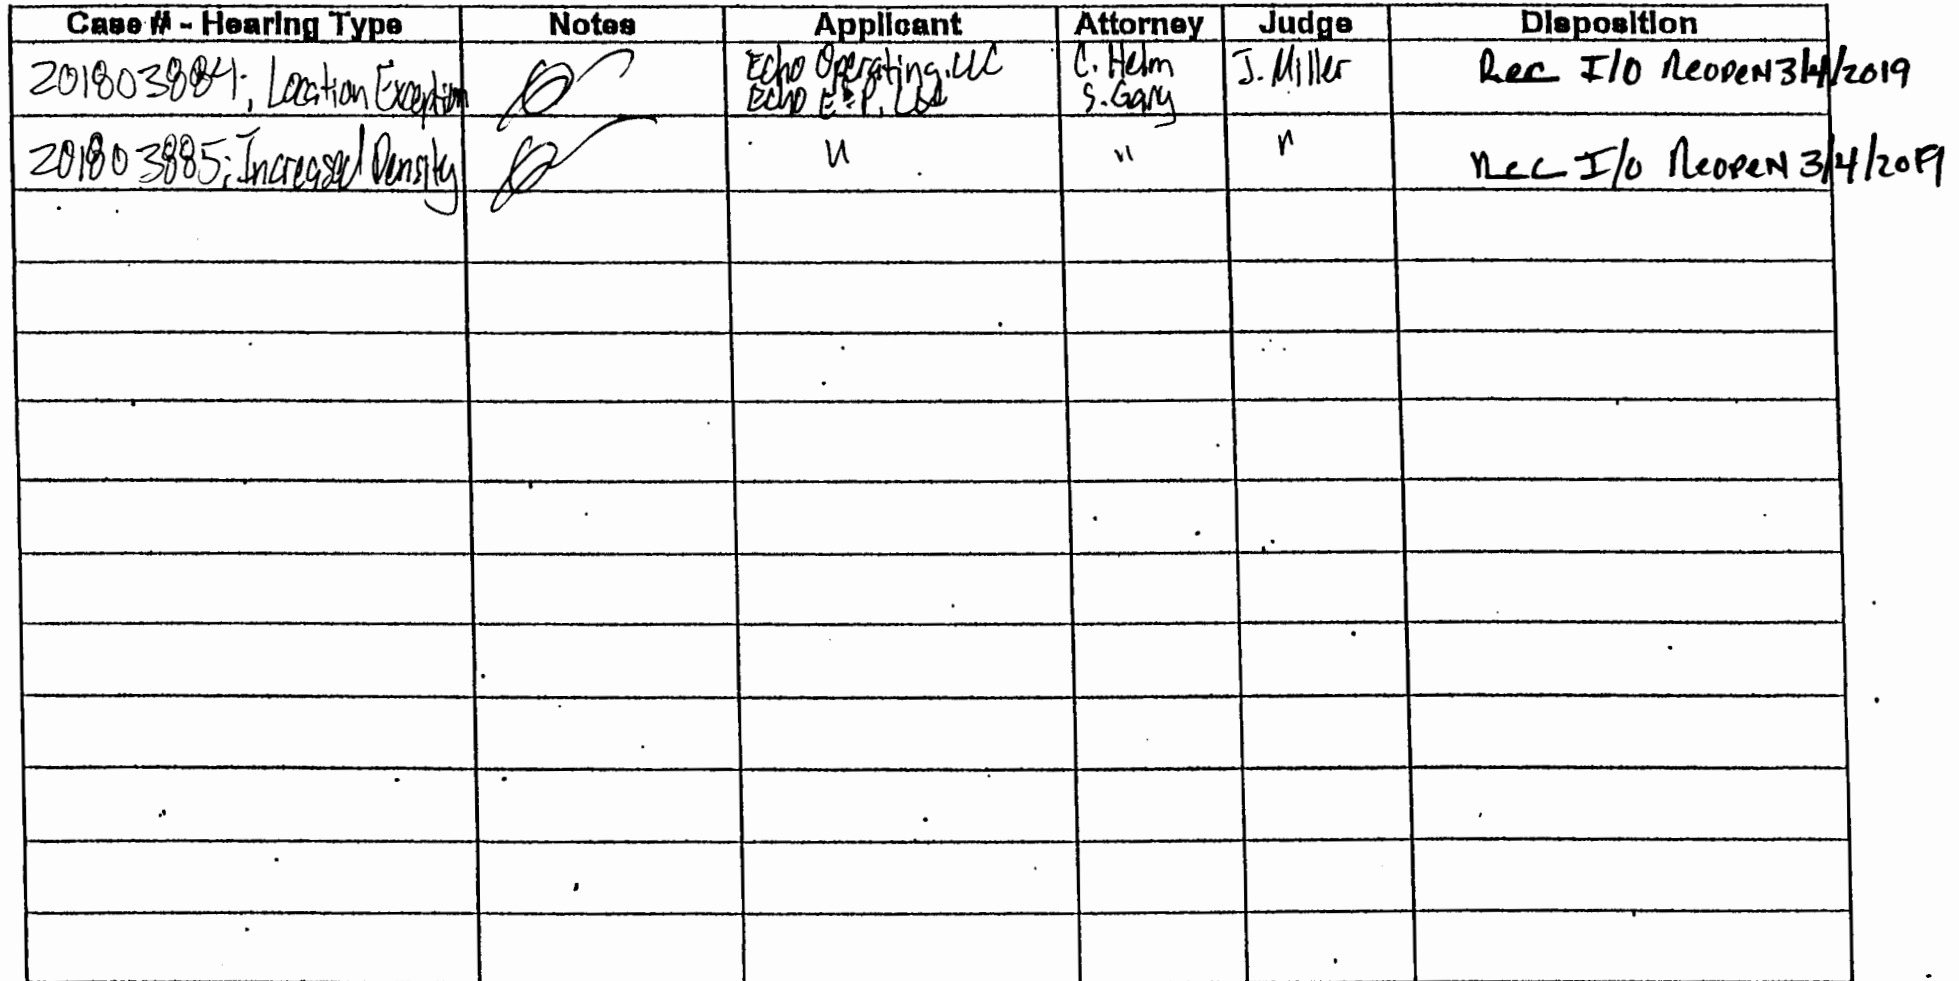 Case # - Hearing Type Notes Applicant Attorney Judge Disposition
201803884; Location Exception Echo Operating, LLC C. Helm J. Miller Rec I/O Reopen 3/4/2019
Echo E&P, Ltd S. Gary
201803885; Increased Density " " " Rec I/O Reopen 3/4/2019